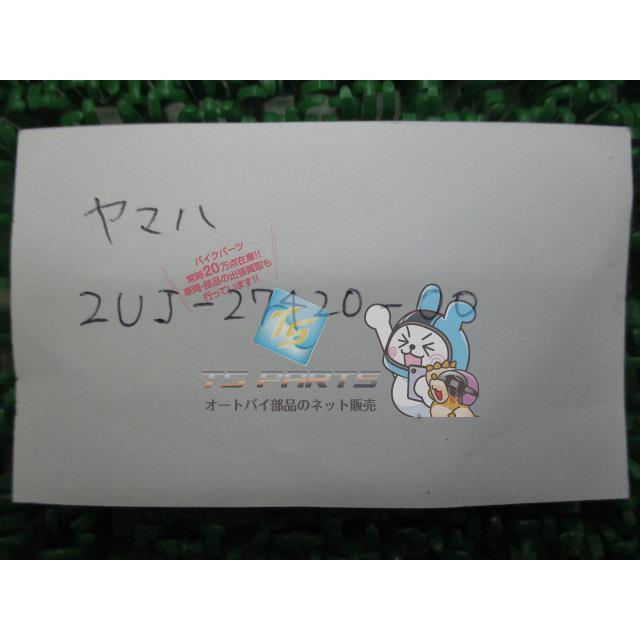 ヤマハ
バイクパーツ
常時20万点在庫!!
車両・部品の出張買取も
行っています!!
2UJ-27420-00
TS
TS PARTS
オートバイ部品のネット販売